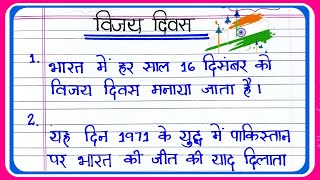 विजय दिवस
1. भारत में हर साल 16 दिसंबर को
विजय दिवस मनाया जाता है।
2. यह दिन 1971 के युद्ध में पाकिस्तान
पर भारत की जीत की याद दिलाता